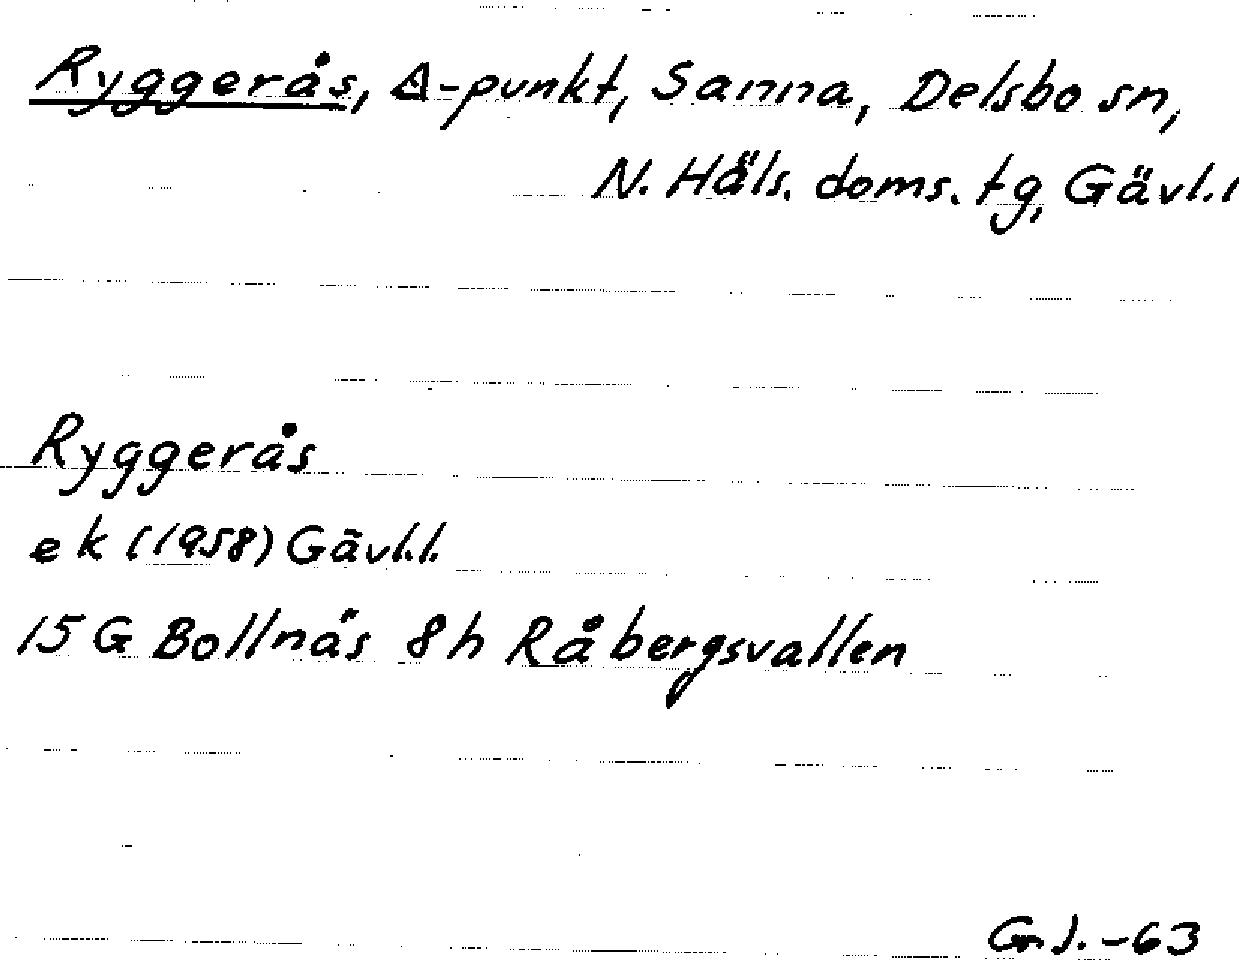 Ryggerås, Δ-punkt, Sanna, Delsbo sn,
N. Häls. doms. tg, Gävl. l
Ryggerås
ek (1958) Gävl.l.
15 G Bollnäs 8h Råbergsvallen
G. J. -63